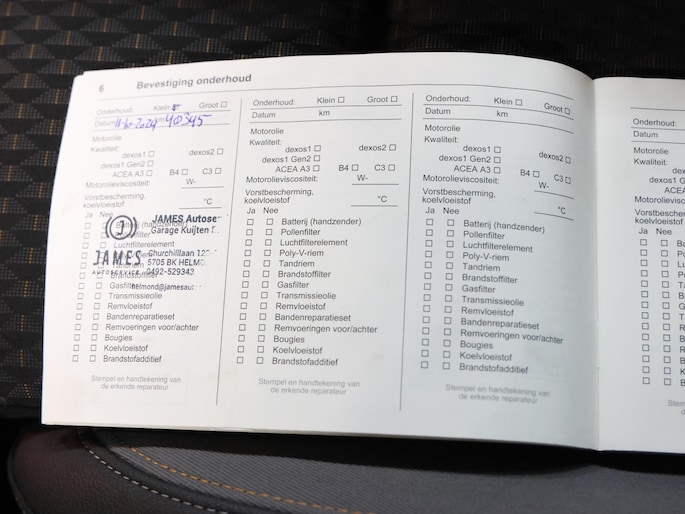 6 Bevestiging onderhoud
Onderhoud: Klein Groot
Datum 11-10-2024 40345
Motorolie
Kwaliteit:
dexos1 dexos2
dexos1 Gen2 B4 C3
ACEA A3
Motorolieviscositeit: W-
Vorstbescherming,
koelvloeistof °C
Ja Nee
Batterij (handzender)
Pollenfilter
Luchtfilterelement
Tandriem
Brandstoffilter
Gasfilter
Transmissieolie
Remvloeistof
Bandenreparatieset
Remvoeringen voor/achter
Bougies
Koelvloeistof
Brandstofadditief
JAMES Autose
Garage Kuijten
Churchilllaan
5705 BK HELMO
0492-529343
helmond@jamesaut
JAMES
AUTOSERVICE
Stempel en handtekening van
de erkende reparateur
Onderhoud: Klein Groot
Datum km
Motorolie
Kwaliteit:
dexos1 dexos2
dexos1 Gen2
ACEA A3 B4 C3
Motorolieviscositeit: W-
Vorstbescherming,
koelvloeistof °C
Ja Nee
Batterij (handzender)
Pollenfilter
Luchtfilterelement
Poly-V-riem
Tandriem
Brandstoffilter
Gasfilter
Transmissieolie
Remvloeistof
Bandenreparatieset
Remvoeringen voor/achter
Bougies
Koelvloeistof
Brandstofadditief
Stempel en handtekening van
de erkende reparateur
Onderhoud: Klein Groot
Datum km
Motorolie
Kwaliteit:
dexos1 dexos2
dexos1 Gen2
ACEA A3 B4 C3
Motorolieviscositeit: W-
Vorstbescherming,
koelvloeistof °C
Ja Nee
Batterij (handzender)
Pollenfilter
Luchtfilterelement
Poly-V-riem
Tandriem
Brandstoffilter
Gasfilter
Transmissieolie
Remvloeistof
Bandenreparatieset
Remvoeringen voor/achter
Bougies
Koelvloeistof
Brandstofadditief
Stempel en handtekening van
de erkende reparateur
Onderhoud:
Datum
Motorolie
Kwaliteit:
Motorolieviscosite
Vorstbescherming
koelvloeistof
Ja Nee